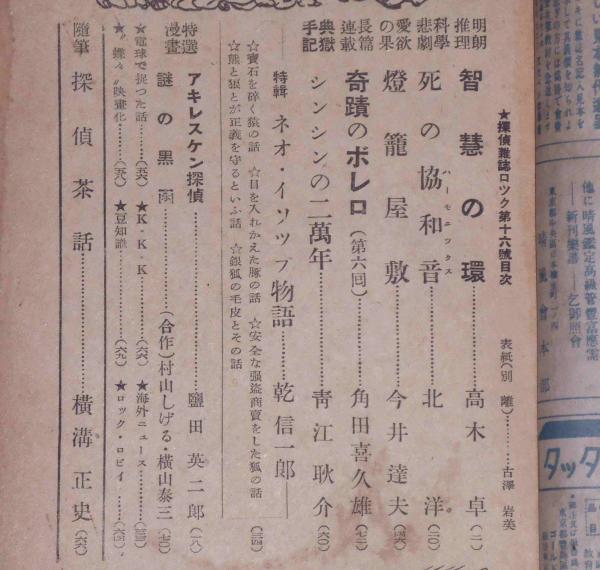 ★探偵雜誌ロツク第十六號目次
表紙(別離)………古澤岩美
明朗推理 智慧の環………高木卓(二)
科學悲劇 死の協和音………北洋(三0)
ハーモニツクス
愛欲の果 燈籠屋敷………今井達夫(四六)
長篇連載 奇蹟のボレロ(第六囘)………角田喜久雄(七二)
典獄手記 シンシンの二萬年………青江耿介(六0)
特輯 ネオ・イソップ物語………乾信一郎
☆寶石を碎く猿の話 ☆目を入れかえた豚の話 ☆安全な强盜商賣をした狐の話
☆熊と狼とが正義を守るといふ話 ☆銀狐の毛皮とその話
(三四)
特選漫畫 アキレスケン探偵………鹽田英二郎(一八)
謎の黒函………(合作)村山しげる・橫山泰三(七0)
★電球で捉つた話………(五六) ★K・K・K………(六六) ★海外ニュース………(三三)
★〃蝶々〃映畫化………(五八) ★豆知識………(六九) ★ロック・ロビイ………(六四)
隨筆 探偵茶話………橫溝正史(六六)
他に晴風鑑定高級管豐富應需
―新刊樂譜―乞御照會
晴風會本部
タッタ